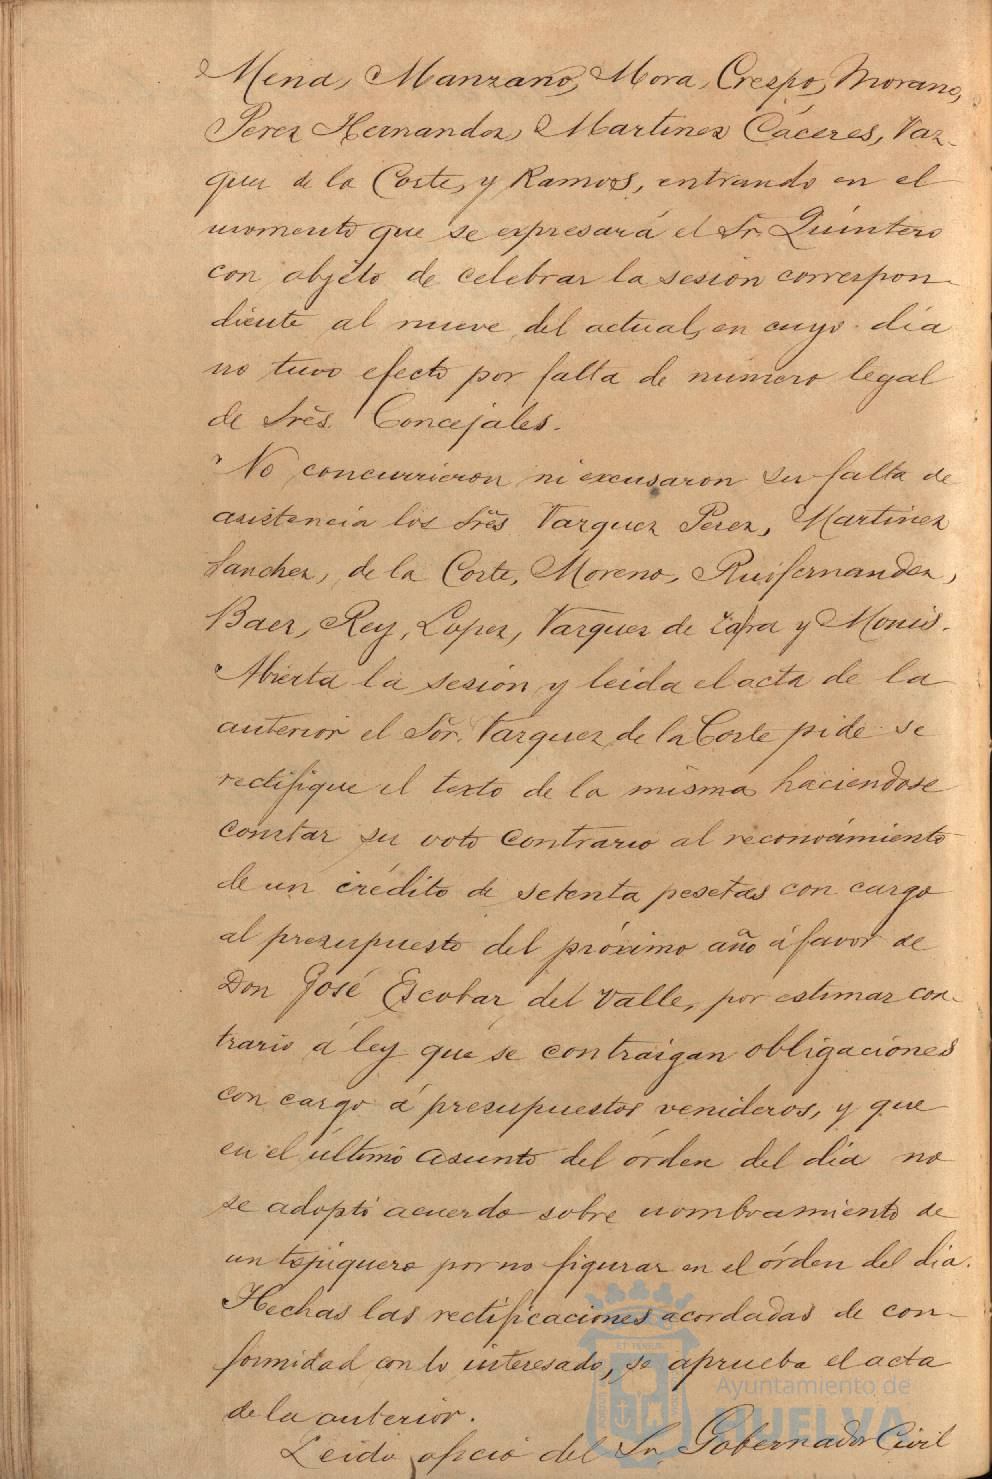 Mena, Manzano, Mora, Crespo, Morano,
Perez Hernandez, Martinez Cáceres, Vaz-
quez de la Corte, y Ramos, entrando en el
momento que se expresará el Sr. Quintero
con objeto de celebrar la sesión correspon-
diente al nueve del actual, en cuyo dia
no tuvo efecto por falta de número legal
de Srēs. Concejales.
No concurrieron ni excusaron su falta de
asistencia los Srēs Vazquez Perez, Martinez
Sanchez, de la Corte, Moreno, Ruifernandez,
Baez, Rey, Lopez, Vazquez de Zafra y Monis.
Abierta la sesión y leida el acta de la
anterior el Sōr. Vazquez de la Corte pide se
rectifique el texto de la misma haciendose
constar su voto contrario al reconocimiento
de un crédito de setenta pesetas con cargo
al presupuesto del próximo año á favor de
Don José Escobar del Valle, por estimar con-
trario á ley que se contraigan obligaciones
con cargo á presupuestos venideros, y que
en el último asunto del órden del dia no
se adoptó acuerdo sobre nombramiento de
un por no figurar en el órden del dia.
Hechas las rectificaciones acordadas de con-
formidad con lo interesado, se aprueba el acta
de la anterior.
Leido oficio del Sr. Gobernador Civil
Ayuntamiento de
HUELVA